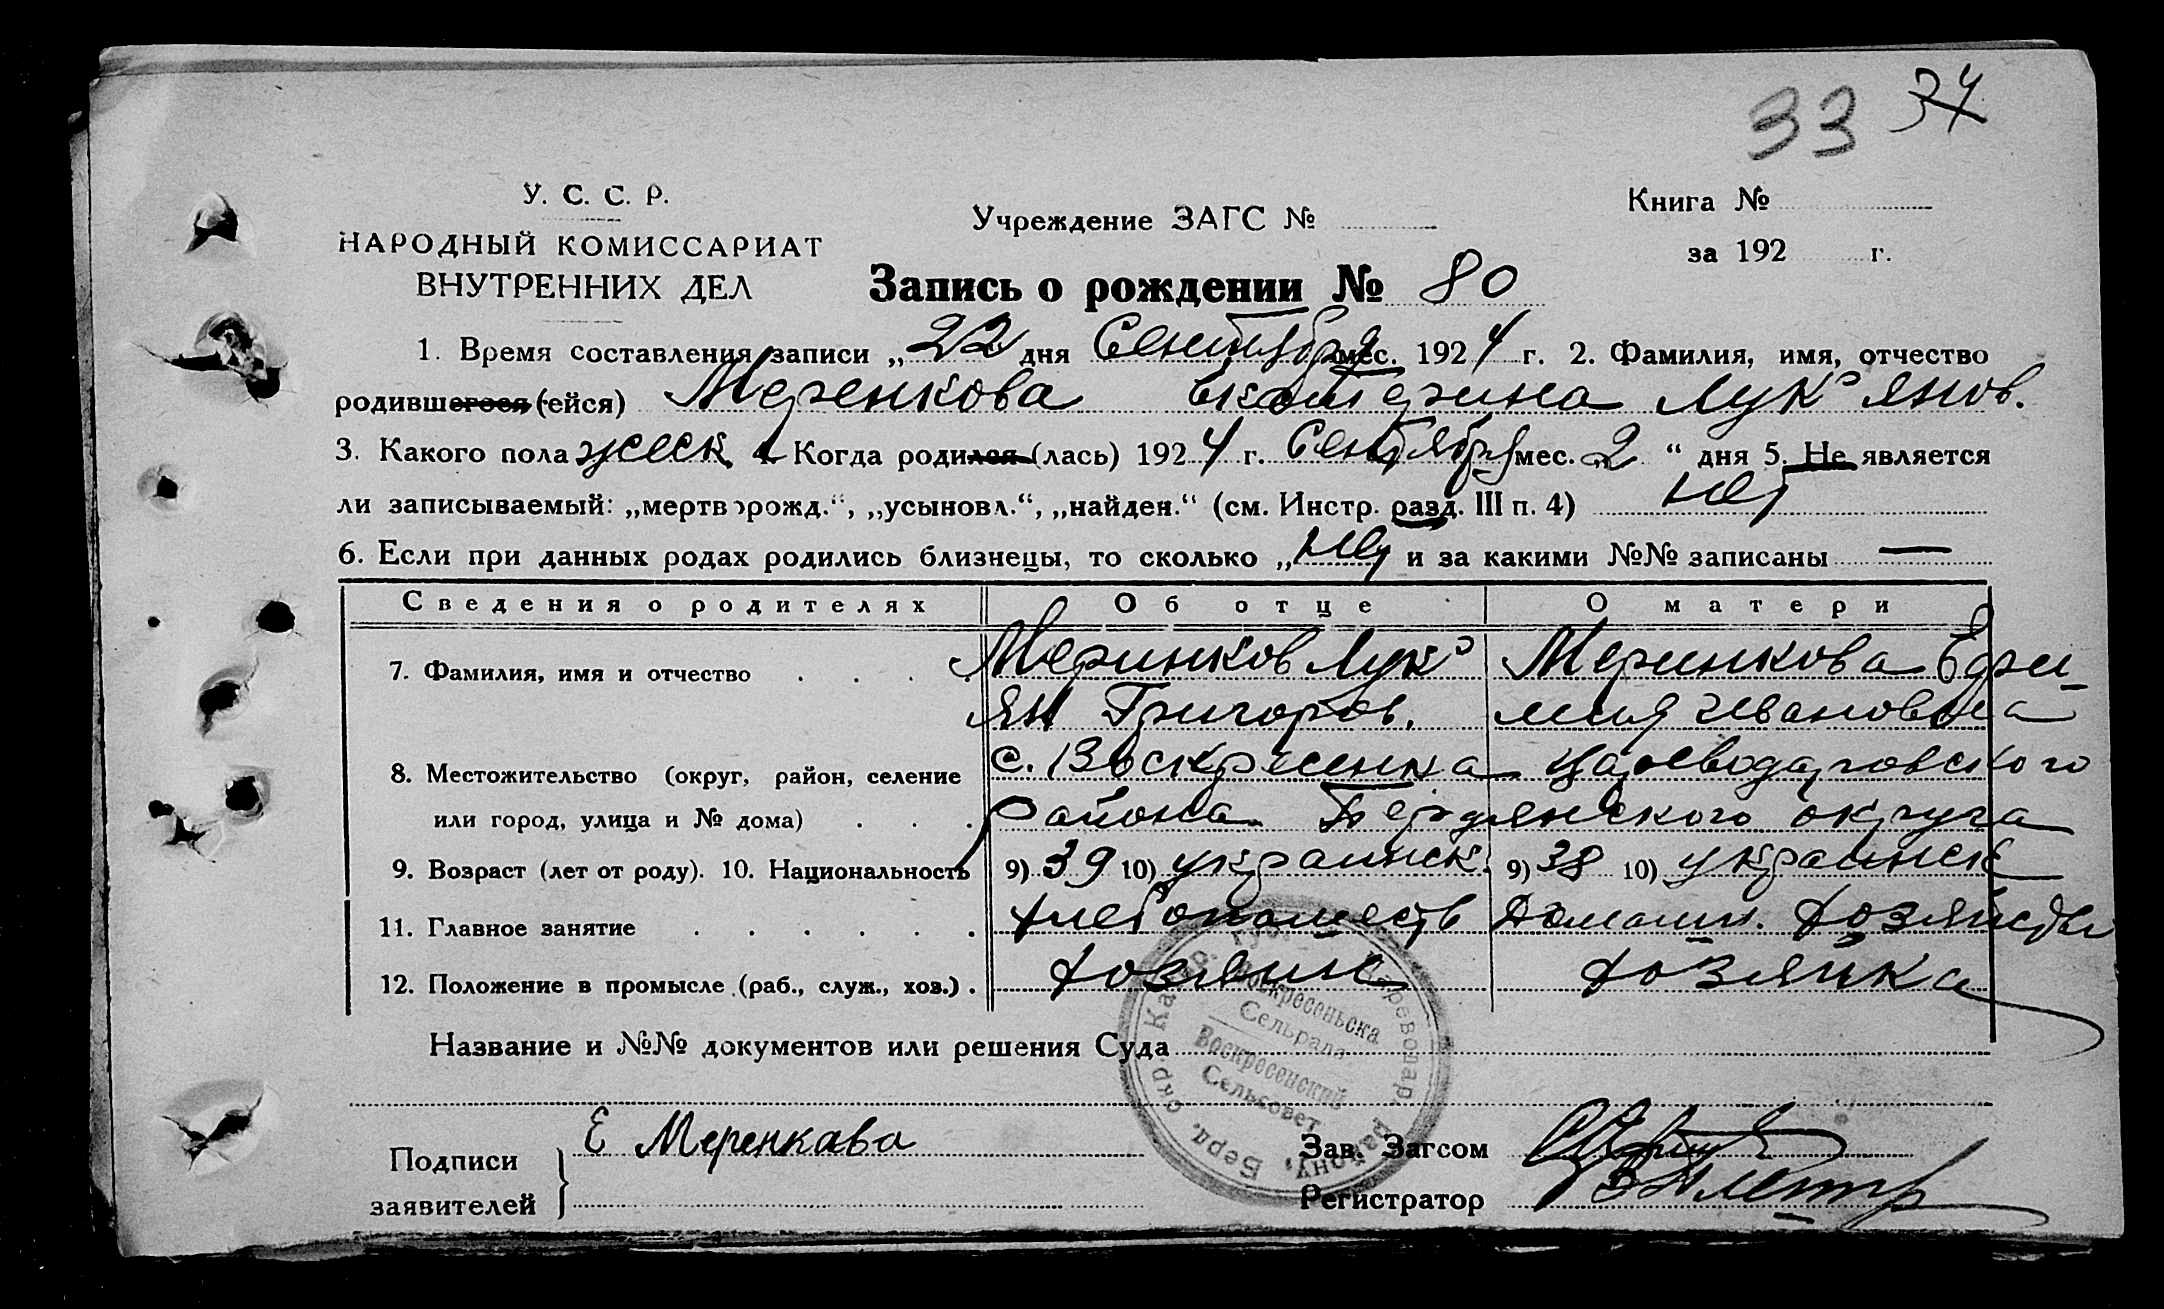 33 34
У. С. С. Р.
НАРОДНЫЙ КОМИССАРИАТ
ВНУТРЕННИХ ДЕЛ
Учреждение ЗАГС №
Книга №
за 192 г.
Запись о рождении № 80
1. Время составления записи „22 дня Сентября мес. 1924 г. 2. Фамилия, имя, отчество
родившегося (ейся) Меренкова Екатерина Лук'янов.
3. Какого пола женск 4. Когда родился (лась) 1924 г. Сентября мес. „2 “ дня 5. Не является
ли записываемый: „мертворожд.“, „усыновл.“, „найден.“ (см. Инстр. разд. III п. 4) нет
6. Если при данных родах родились близнецы, то сколько „нет и за какими №№ записаны —
Сведения о родителях Об отце О матери
7. Фамилия, имя и отчество . . . . Меринков Лук' Меринкова Ефи-
ян Григоров. мия Ивановна
8. Местожительство (округ, район, селение с. Воскресенка Цареводаровского
или город, улица и № дома) . . . района Бердянского округа
9. Возраст (лет от роду). 10. Национальность 9) 39 10) украинск. 9) 38 10) украинск
11. Главное занятие . . . . . . Хлебопашеств Домашн. хозяйство
12. Положение в промысле (раб., служ., хоз.) . хозяин хозяйка
Название и №№ документов или решения Суда
Воскресеньска
Сельрада
Воскресенский
Сельсовет
Подписи
заявителей
Е Меренкава
Зав. Загсом
Регистратор